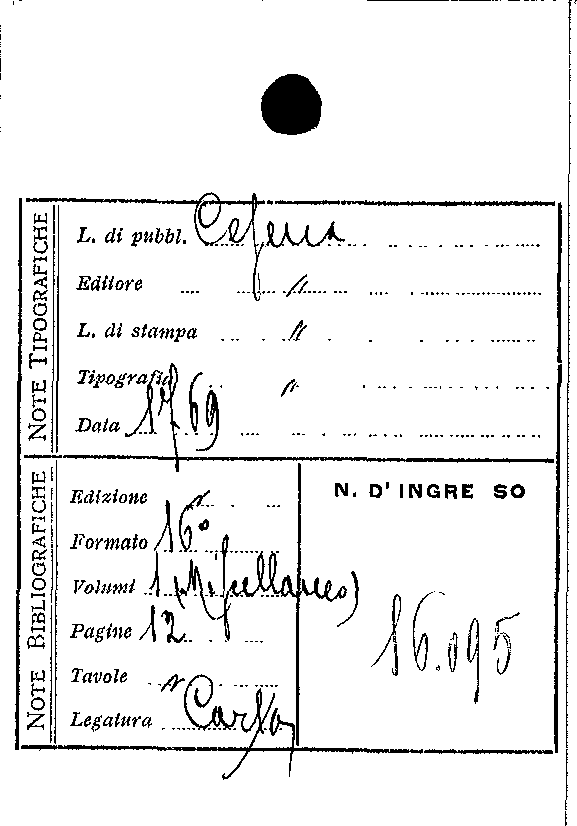 NOTE TIPOGRAFICHE
L. di pubbl. Cesena
Editore "
L. di stampa "
Tipografia "
Data 1769
NOTE BIBLIOGRAFICHE
Edizione "
Formato 16°
Volumi 1 (Miscellaneo)
Pagine 12
Tavole "
Legatura Carta
N. D'INGRE SO
16.095